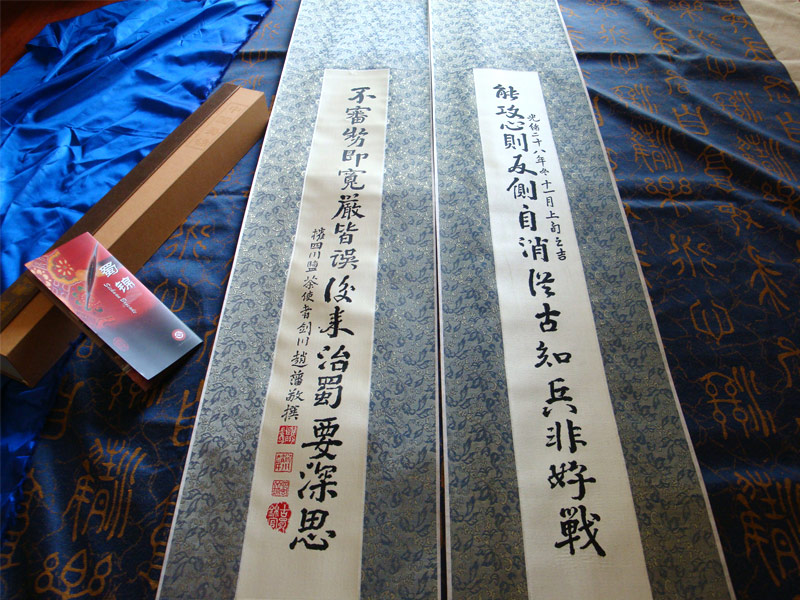 能攻心則反側自消從古知兵非好戰
光緒二十八年冬十一月上旬之吉
不審勢即寬嚴皆誤後來治蜀要深思
權四川鹽茶使者劍川趙藩敬撰
蜀錦